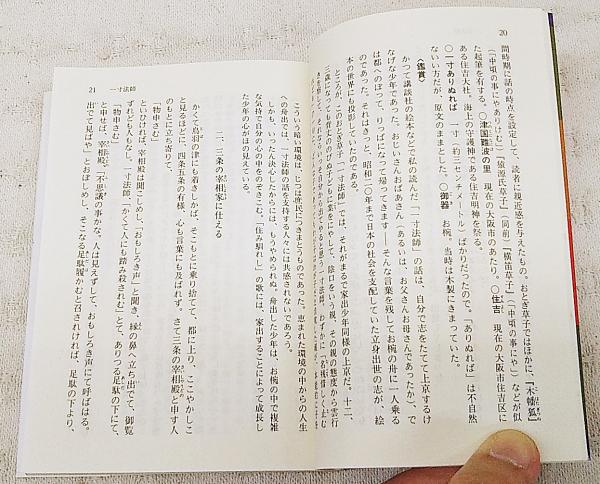 20
間時期に話の時点を設定して、読者に親近感を与えたもの。おとぎ草子ではほかに、『木幡狐』
(「中頃の事にやありけむ」)『猿源氏草子』(同前)『横笛草子』(「中頃の事にや」)などが似
た起筆を有する。〇津国難波の里 現在の大阪市のあたり。〇住吉 現在の大阪市住吉区に
ある住吉大社。海上の守護神である住吉明神を祭る。
〇一寸ありぬれば 一寸(約三センチメートル)ばかりだったので。「ありぬれば」は不自然
ない方だが、原文のままとした。〇御器 お椀。当時は木製にきまっていた。
〈鑑賞〉
かつて講談社の絵本などで私の読んだ「一寸法師」の話は、自分で志をたてて上京するけ
なげな少年であった。おじいさんおばあさん(あるいは、お父さんお母さんであったか)、で
は都へのぼって、りっぱになって帰ってきます――そんな言葉を残してお椀の舟に一人乗る
のであった。それはきっと、昭和二〇年まで日本の社会を支配していた立身出世の志が、絵
本の世界にも投影していたのである。
かるに、このおとぎ草子『一寸法師』では、それがまるで家出少年同様の上京だ。十二、
三歳になっても背丈ののびぬ子どもに業をにやして、陰口をいう親、その親の態度から雲行
21 一寸法師
こういう暗い環境は、じつは庶民につきまとうものであった。恵まれた環境の中からの人生
への舟出では、一寸法師の話を支持する人々には共感されないであろう。
しかも、いったん決心したからには、もうやめられぬ。舟出した少年は、お椀の中で複雑
な気持で自分の心の中をのぞきこむ。「住み馴れし」の歌には、家出することによって成長し
た少年の心がほの見えている。
二、三条の宰相家に仕える
かくて鳥羽の津にも着きしかば、そこもとに乗り捨てて、都に上り、ここやかしこ
と見るほどに、四条五条の有様、心も言葉にも及ばれず。さて三条の宰相殿と申す人
のもとに立ち寄りて、
「物申さむ」
といひければ、宰相殿は聞こしめし、「おもしろき声」と聞き、縁の鼻へ立ち出でて、御覧
ずれども人もなし。一寸法師、「かくて人にも踏み殺されむ」とて、ありつる足駄の下にて、
「物申さむ」
と申せば、宰相殿、「不思議の事かな、人は見えずして、おもしろき声にて呼ばはる。
出でて見ばや」とおぼしめし、そこなる足駄履かむと召されければ、足駄の下より、